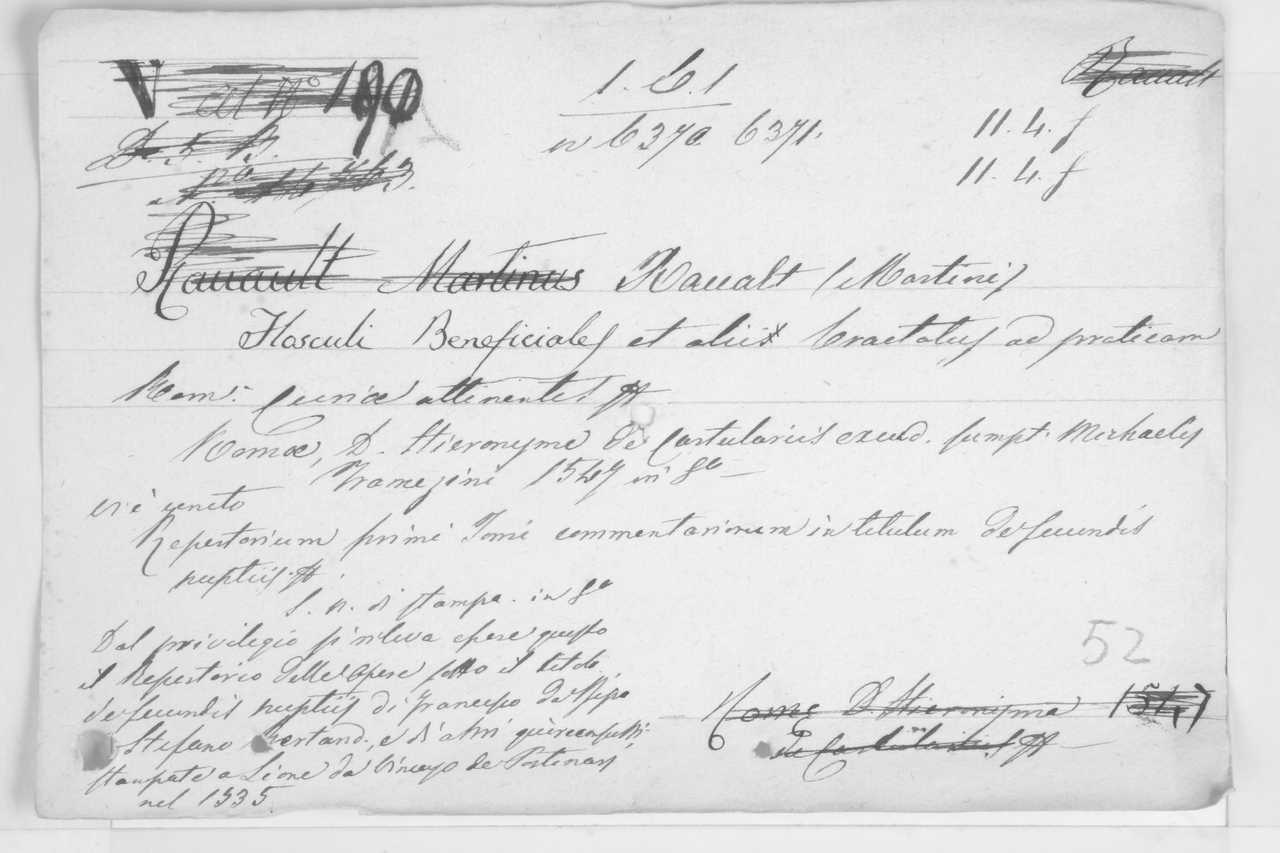 V at N.º 190
1. 6. 1
Rauault
D. 5. B.
n 6370 6371.
11. 4. f
11. 4. f
Rauault Martinus Raualt (Martini)
Flosculi Beneficiales et aliix tractatus ad praticam
Rom: Curiæ attinentes
Romæ, D. Hieronyma de Cartulariis excud. sumpt. Michaelis
Tramezini 1547 in 8º
Vi è unito
Repertorium primi Tomi commentariorum in titulum de secundis
nuptiis
S. n. di stampa. in 8º
Dal privilegio si rileva essere questo
il Repertorio delle Opere sotto il titolo
de secundis nuptiis di Francesco da Ripa
Stefano Bertand., e di altri
stampate a Lione da Vincenzo de Portonariis
nel 1535.
52
Rome D. Hieronyma 1547
de Cartulariis